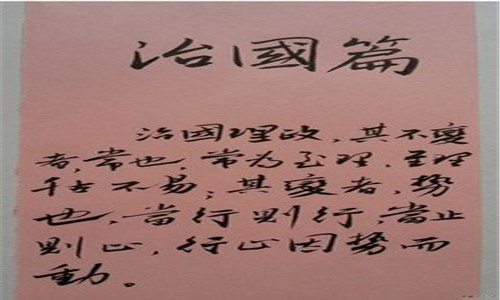 治國篇
治國理政，其不變
者，常也，常为至理，至理
千古不易；其變者，勢
也，當行则行，當止
则止，行止因勢而
動。